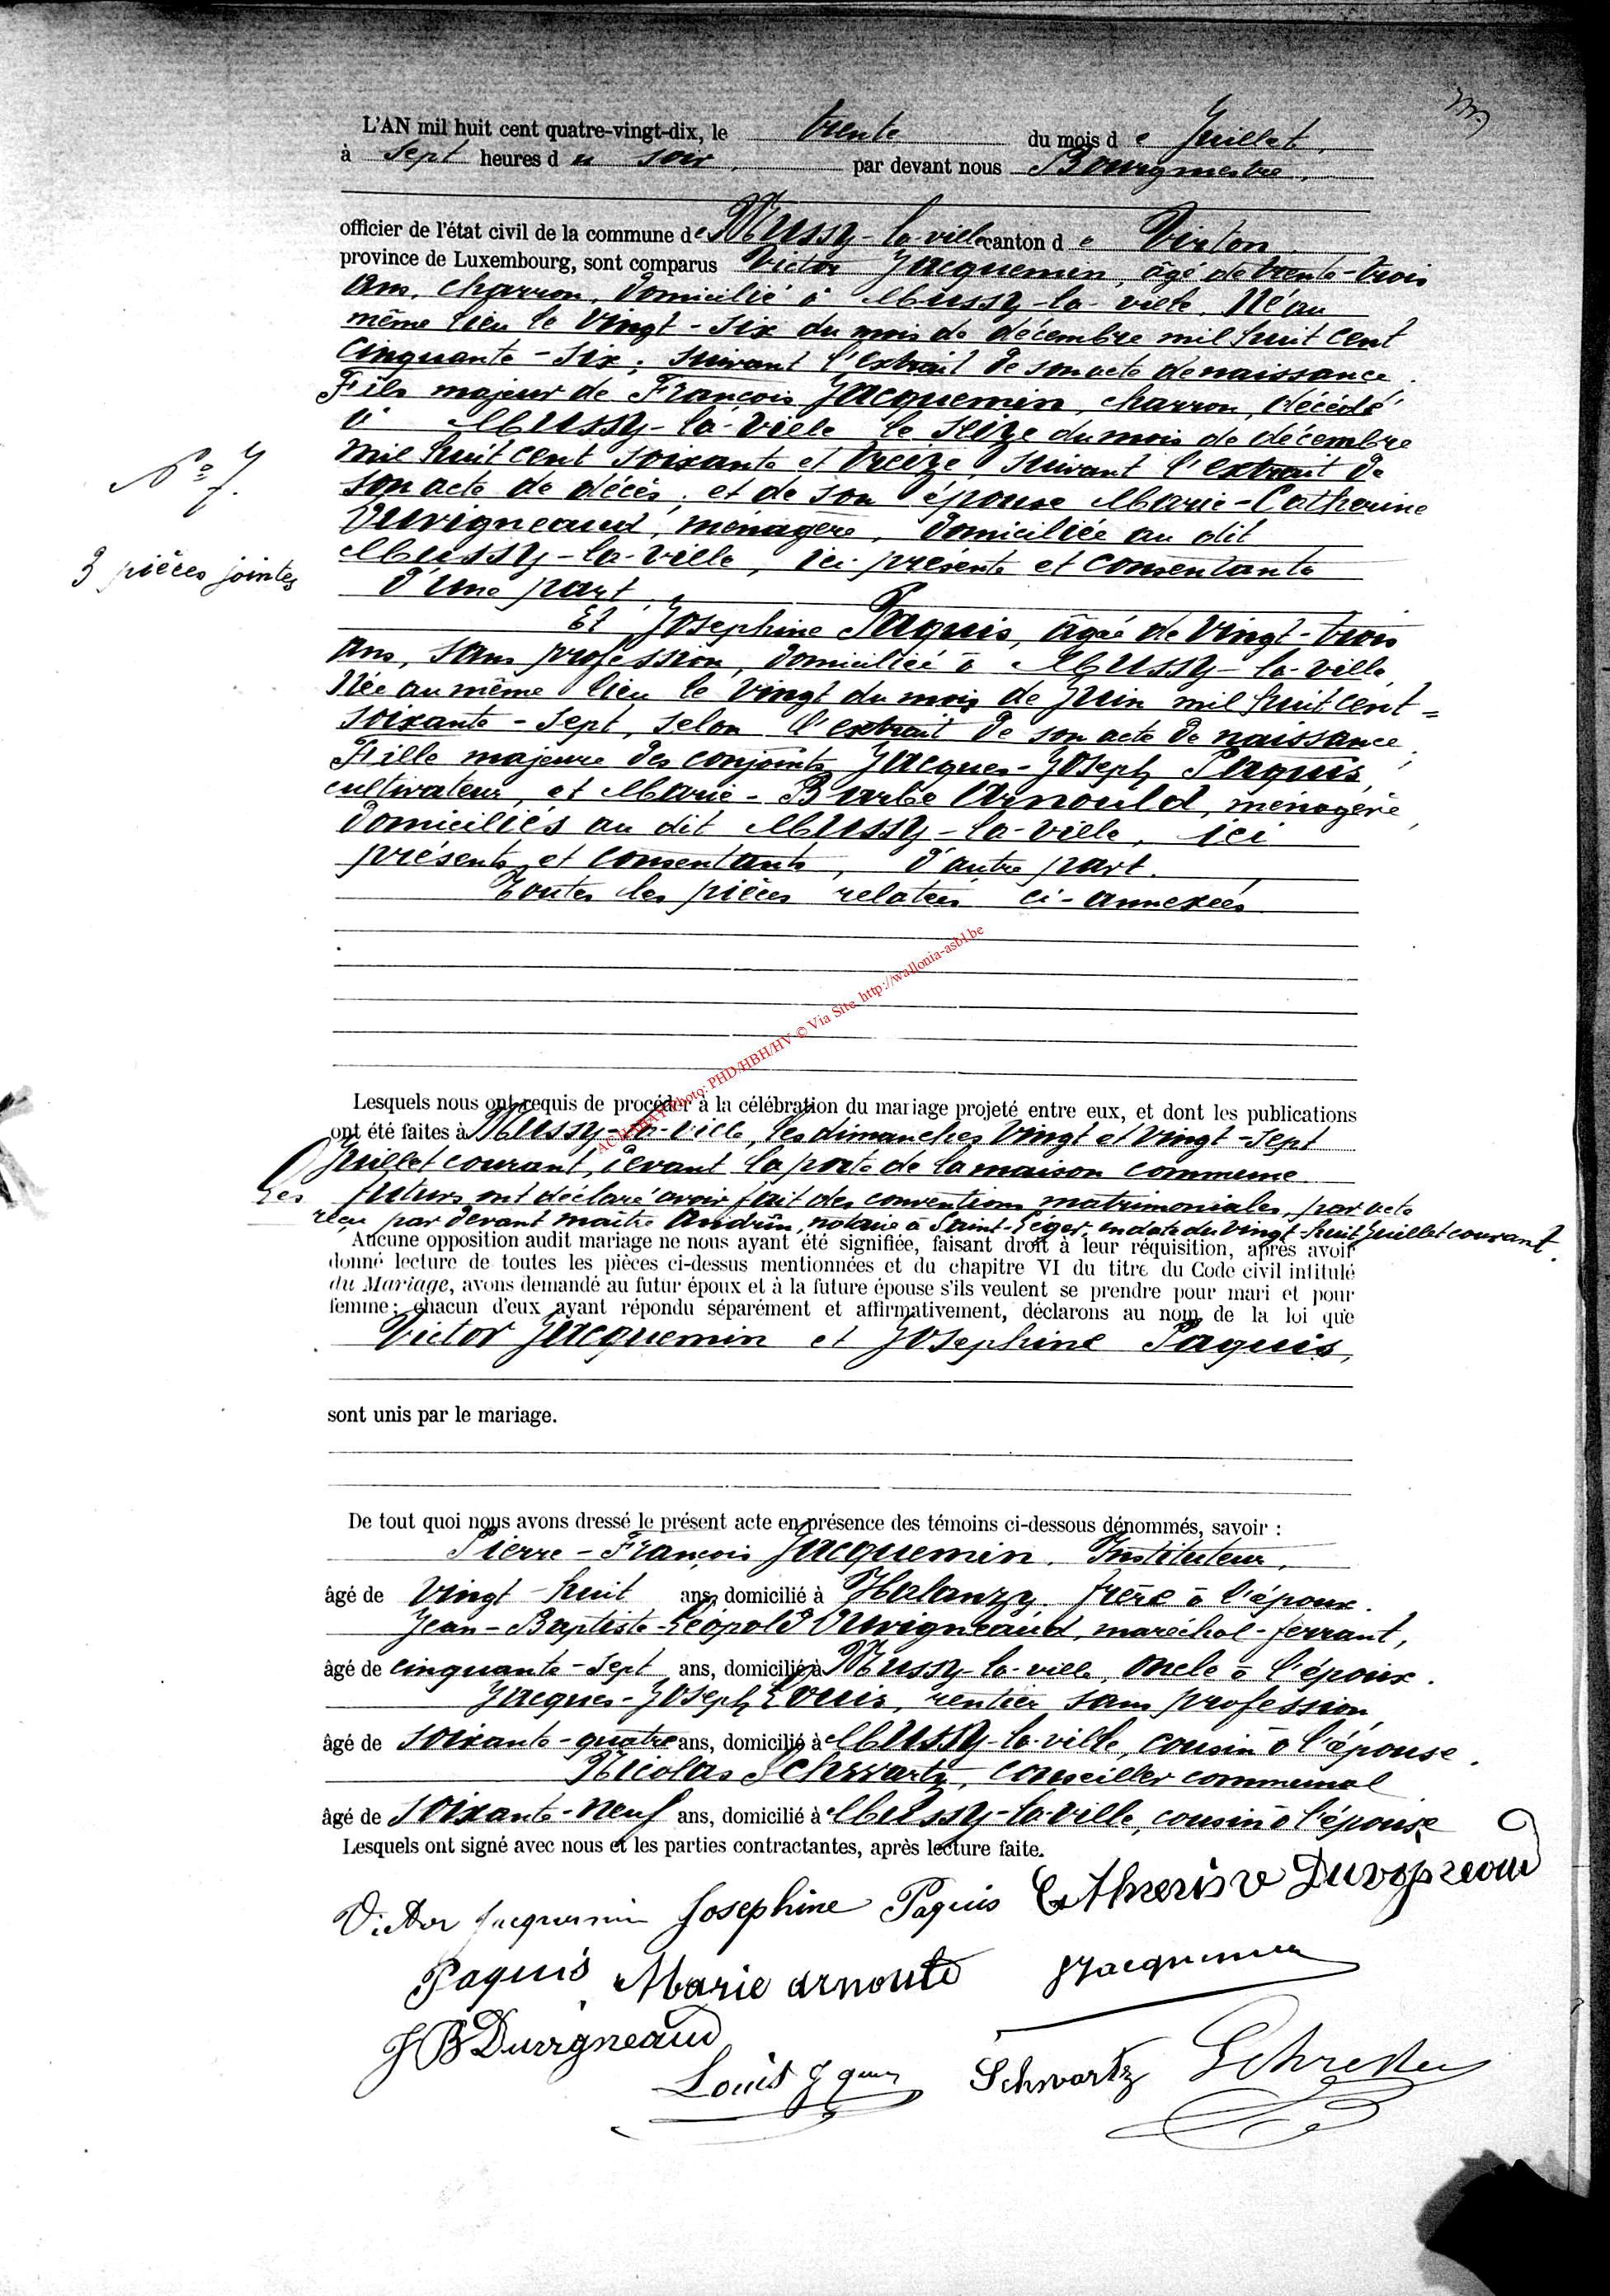 L'AN mil huit cent quatre-vingt-dix, le trente du mois de Juillet,
à Sept heures du soir, par devant nous Bourgmestre,
officier de l'état civil de la commune de Mussy-la-ville canton de Virton
province de Luxembourg, sont comparus Victor Jacquemin, âgé de trente-trois
ans, charron, domicilié à Mussy-la-ville. Né au
même lieu le vingt-six du mois de décembre mil huit cent
cinquante-six; suivant l'extrait de son acte de naissance.
Fils majeur de François Jacquemin, charron, décédé
à Mussy-la-Ville le seize du mois de décembre
mil huit cent soixante et treize, suivant l'extrait de
son acte de décès; et de son épouse Marie-Catherine
Duvigneaud, ménagère, domiciliée au dit
Mussy-la-ville, ici présente et consentante
d'une part.
N° 7.
3 pièces jointes
Et Josephine Paquis, âgée de vingt-trois
ans, sans profession, domiciliée à Mussy-la-ville,
Née au même lieu le vingt du mois de Juin mil huit cent=
soixante-sept, selon l'extrait de son acte de naissance;
Fille majeure des conjoints Jacques-Joseph Paquis,
cultivateur, et Marie-Barbe Arnould, ménagère,
domiciliés au dit Mussy-la-ville, ici
présents et consentants, d'autre part.
Toutes les pièces relatées ci-annexées
ACHABAY Photo: PHD/HBH/HV © Via Site http://wallonia-asbl.be
Lesquels nous ont requis de procéder à la célébration du mariage projeté entre eux, et dont les publications
ont été faites à Mussy-la-ville, les dimanches vingt et vingt-sept
Juillet courant, devant la porte de la maison commune
Les futurs ont déclaré avoir fait des conventions matrimoniales, par acte
reçu par devant maître Andrin, notaire à Saint-Léger, en date du vingt-huit Juillet courant.
Aucune opposition audit mariage ne nous ayant été signifiée, faisant droit à leur réquisition, après avoir
donné lecture de toutes les pièces ci-dessus mentionnées et du chapitre VI du titre du Code civil intitulé
du Mariage, avons demandé au futur époux et à la future épouse s'ils veulent se prendre pour mari et pour
femme; chacun d'eux ayant répondu séparément et affirmativement, déclarons au nom de la loi que
Victor Jacquemin et Josephine Paquis,
sont unis par le mariage.
De tout quoi nous avons dressé le présent acte en présence des témoins ci-dessous dénommés, savoir :
Pierre-François Jacquemin, Instituteur,
âgé de vingt-huit ans, domicilié à Halanzy, frère à l'époux.
Jean-Baptiste-Léopold Duvigneaud, maréchal-ferrant,
âgé de cinquante-sept ans, domicilié à Mussy-la-ville, oncle à l'époux.
Jacques-Joseph Louis, rentier sans profession,
âgé de soixante-quatre ans, domicilié à Mussy-la-ville, cousin à l'épouse.
Nicolas Schwartz, conseiller communal
âgé de soixante-neuf ans, domicilié à Mussy-la-ville, cousin à l'épouse
Lesquels ont signé avec nous et les parties contractantes, après lecture faite.
Victor Jacquemin Josephine Paquis
Paquis Marie arnould Jacquemin
JB Duvigneaud
Louis Schwartz